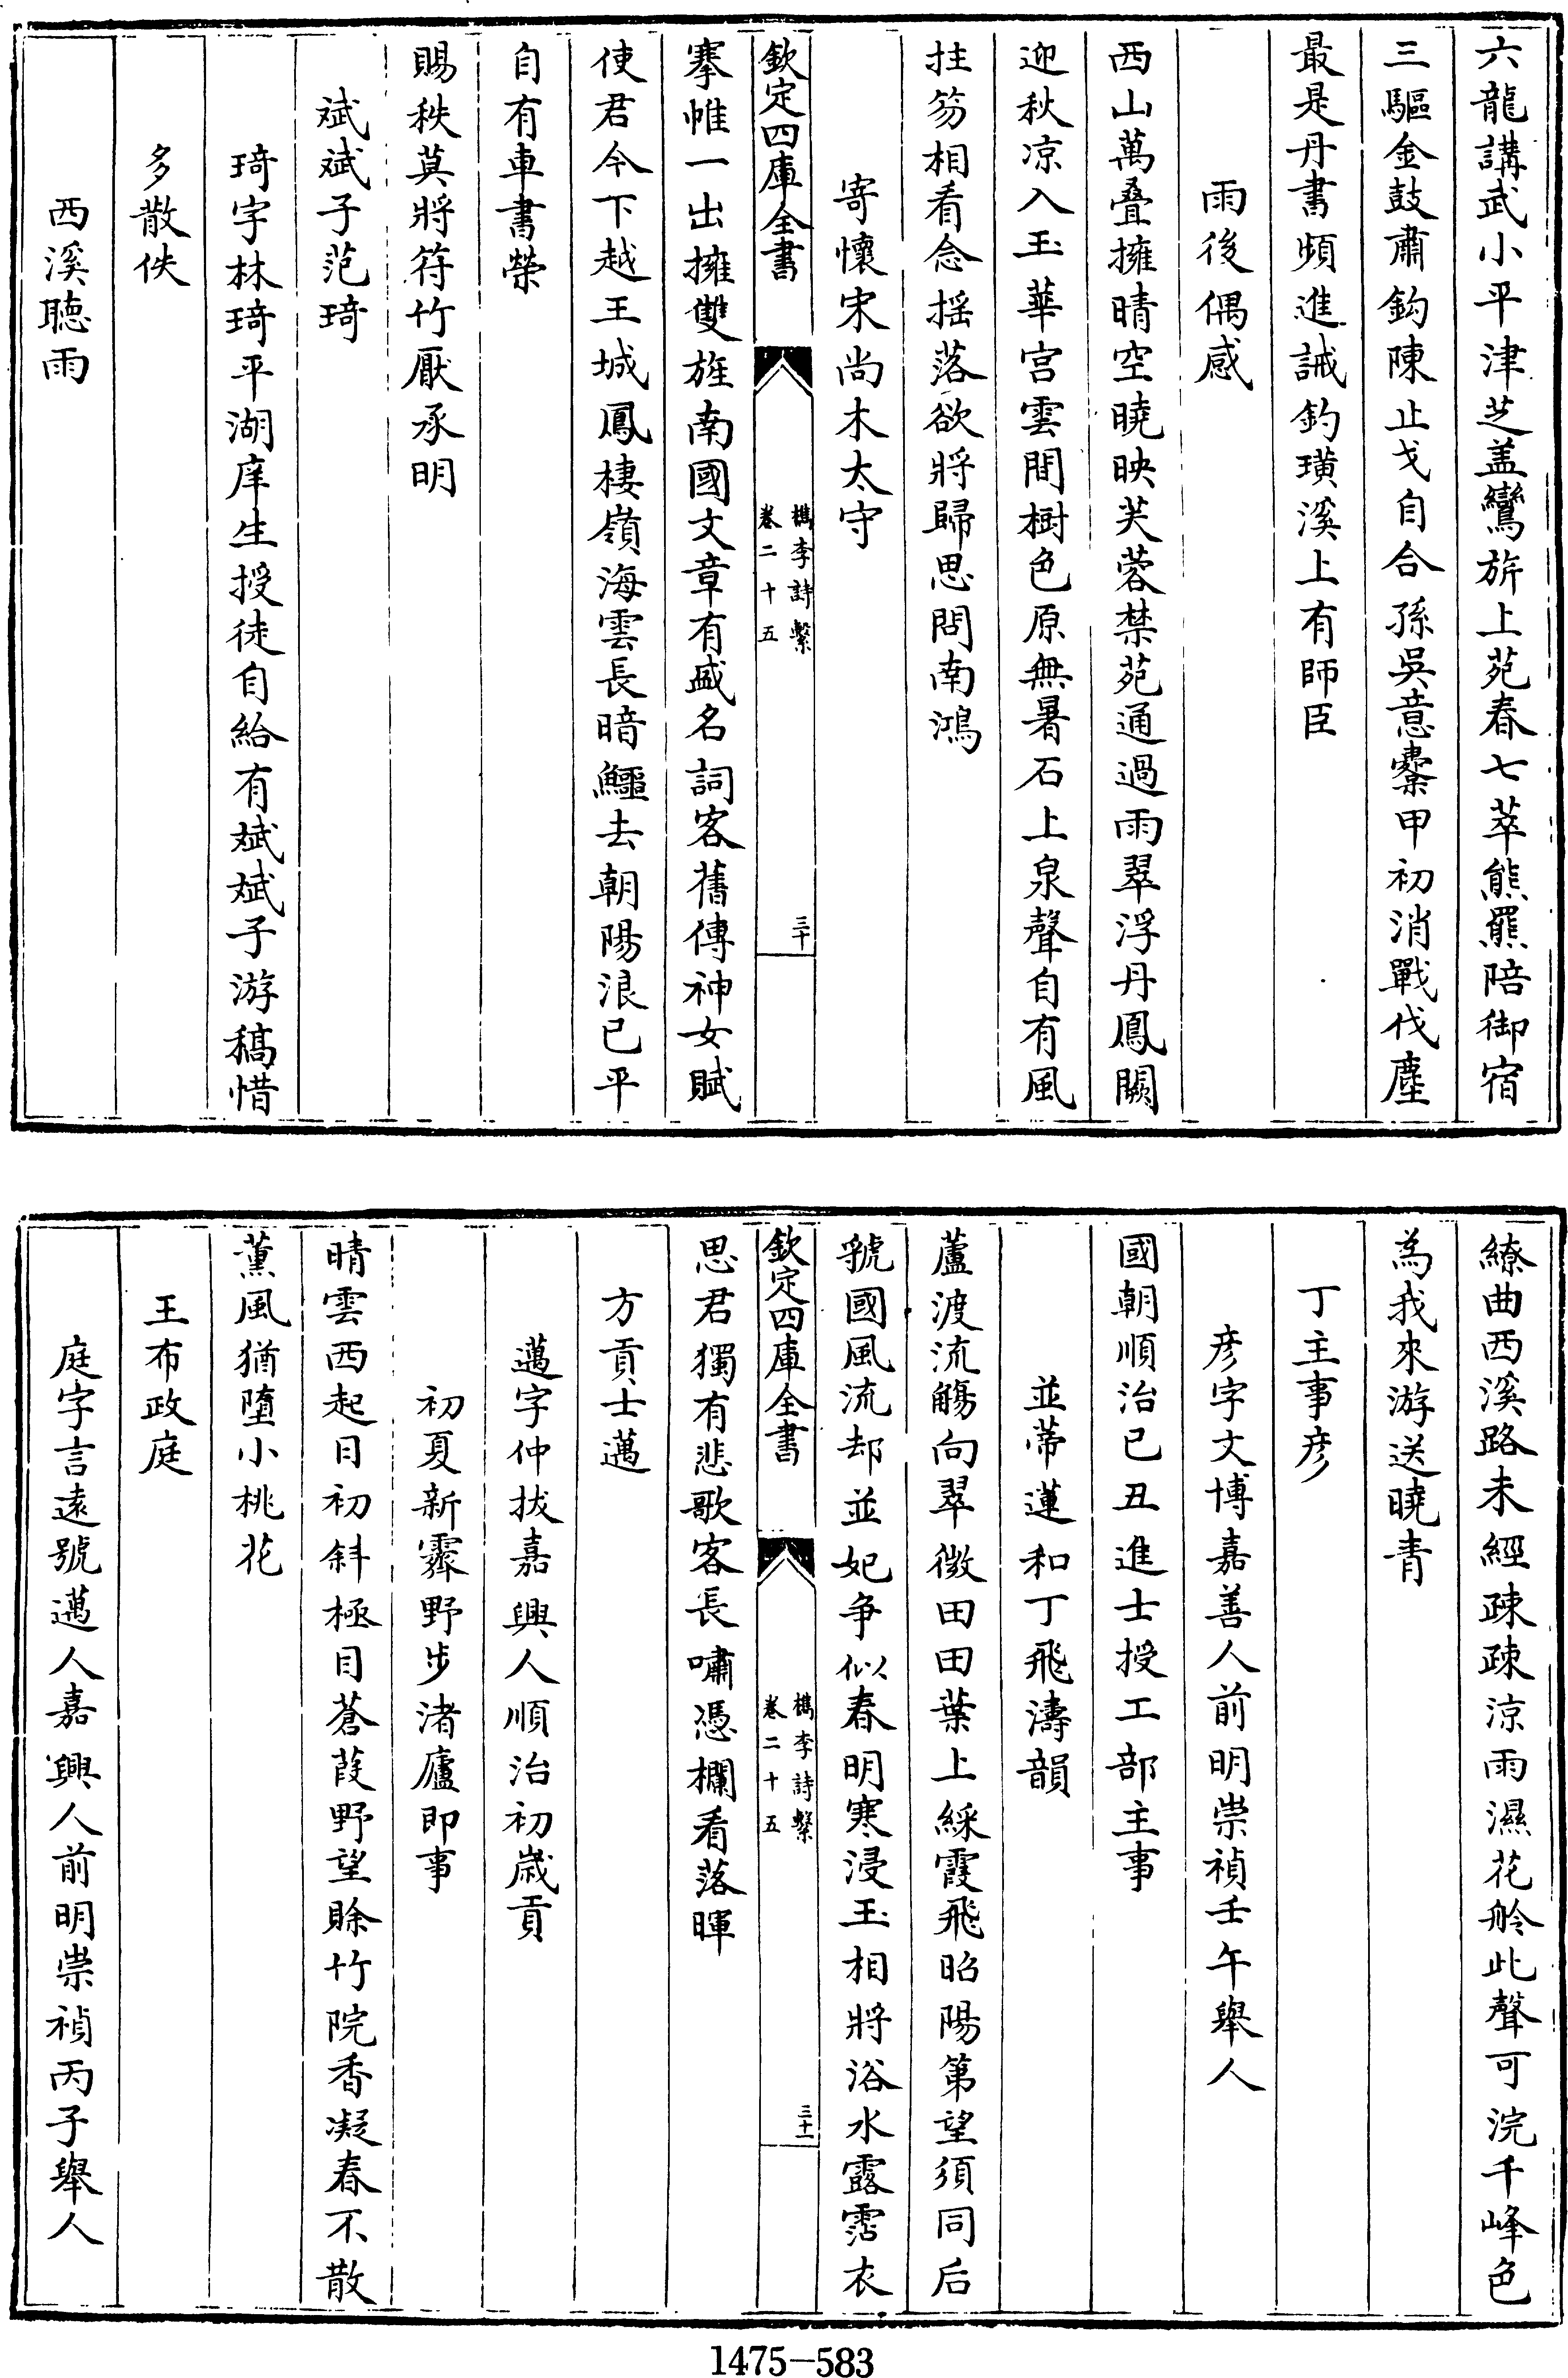 六龍講武小平津芝盖鸞旂上苑春七萃熊羆陪御宿
三驅金鼓肅鈎陳止戈自合孫吳意櫜甲初消戰伐塵
最是丹書頻進誡釣璜溪上有師臣
雨後偶感
西山萬叠擁晴空曉映芙蓉禁苑通過雨翠浮丹鳳闕
迎秋凉入玉華宫雲間樹色原無暑石上泉聲自有風
拄笏相看念揺落欲將歸思問南鴻
寄懷宋尚木太守
欽定四庫全書
檇李詩繫
卷二十五
三十
搴帷一出擁雙旌南國文章有盛名詞客舊傳神女賦
使君今下越王城鳳棲嶺海雲長暗鱷去朝陽浪已平
自有車書榮
賜秩莫將符竹厭承明
斌斌子范琦
琦字林琦平湖庠生授徒自給有斌斌子游稿惜
多散佚
西溪聽雨
繚曲西溪路未經疎疎凉雨濕花舲此聲可浣千峰色
為我來游送曉青
丁主事彦
彦字文博嘉善人前明崇禎壬午舉人
國朝順治己丑進士授工部主事
並蒂蓮和丁飛濤韻
蘆渡流觴向翠微田田葉上綵霞飛昭陽第望須同后
虢國風流却並妃争似春明寒浸玉相將浴水露霑衣
欽定四庫全書
檇李詩繫
卷二十五
三十一
思君獨有悲歌客長嘯憑欄看落暉
方貢士邁
邁字仲拔嘉興人順治初歲貢
初夏新霽野步渚廬即事
晴雲西起日初斜極目蒼葭野望賖竹院香凝春不散
薰風猶墮小桃花
王布政庭
庭字言遠號邁人嘉興人前明崇禎丙子舉人
1475—583